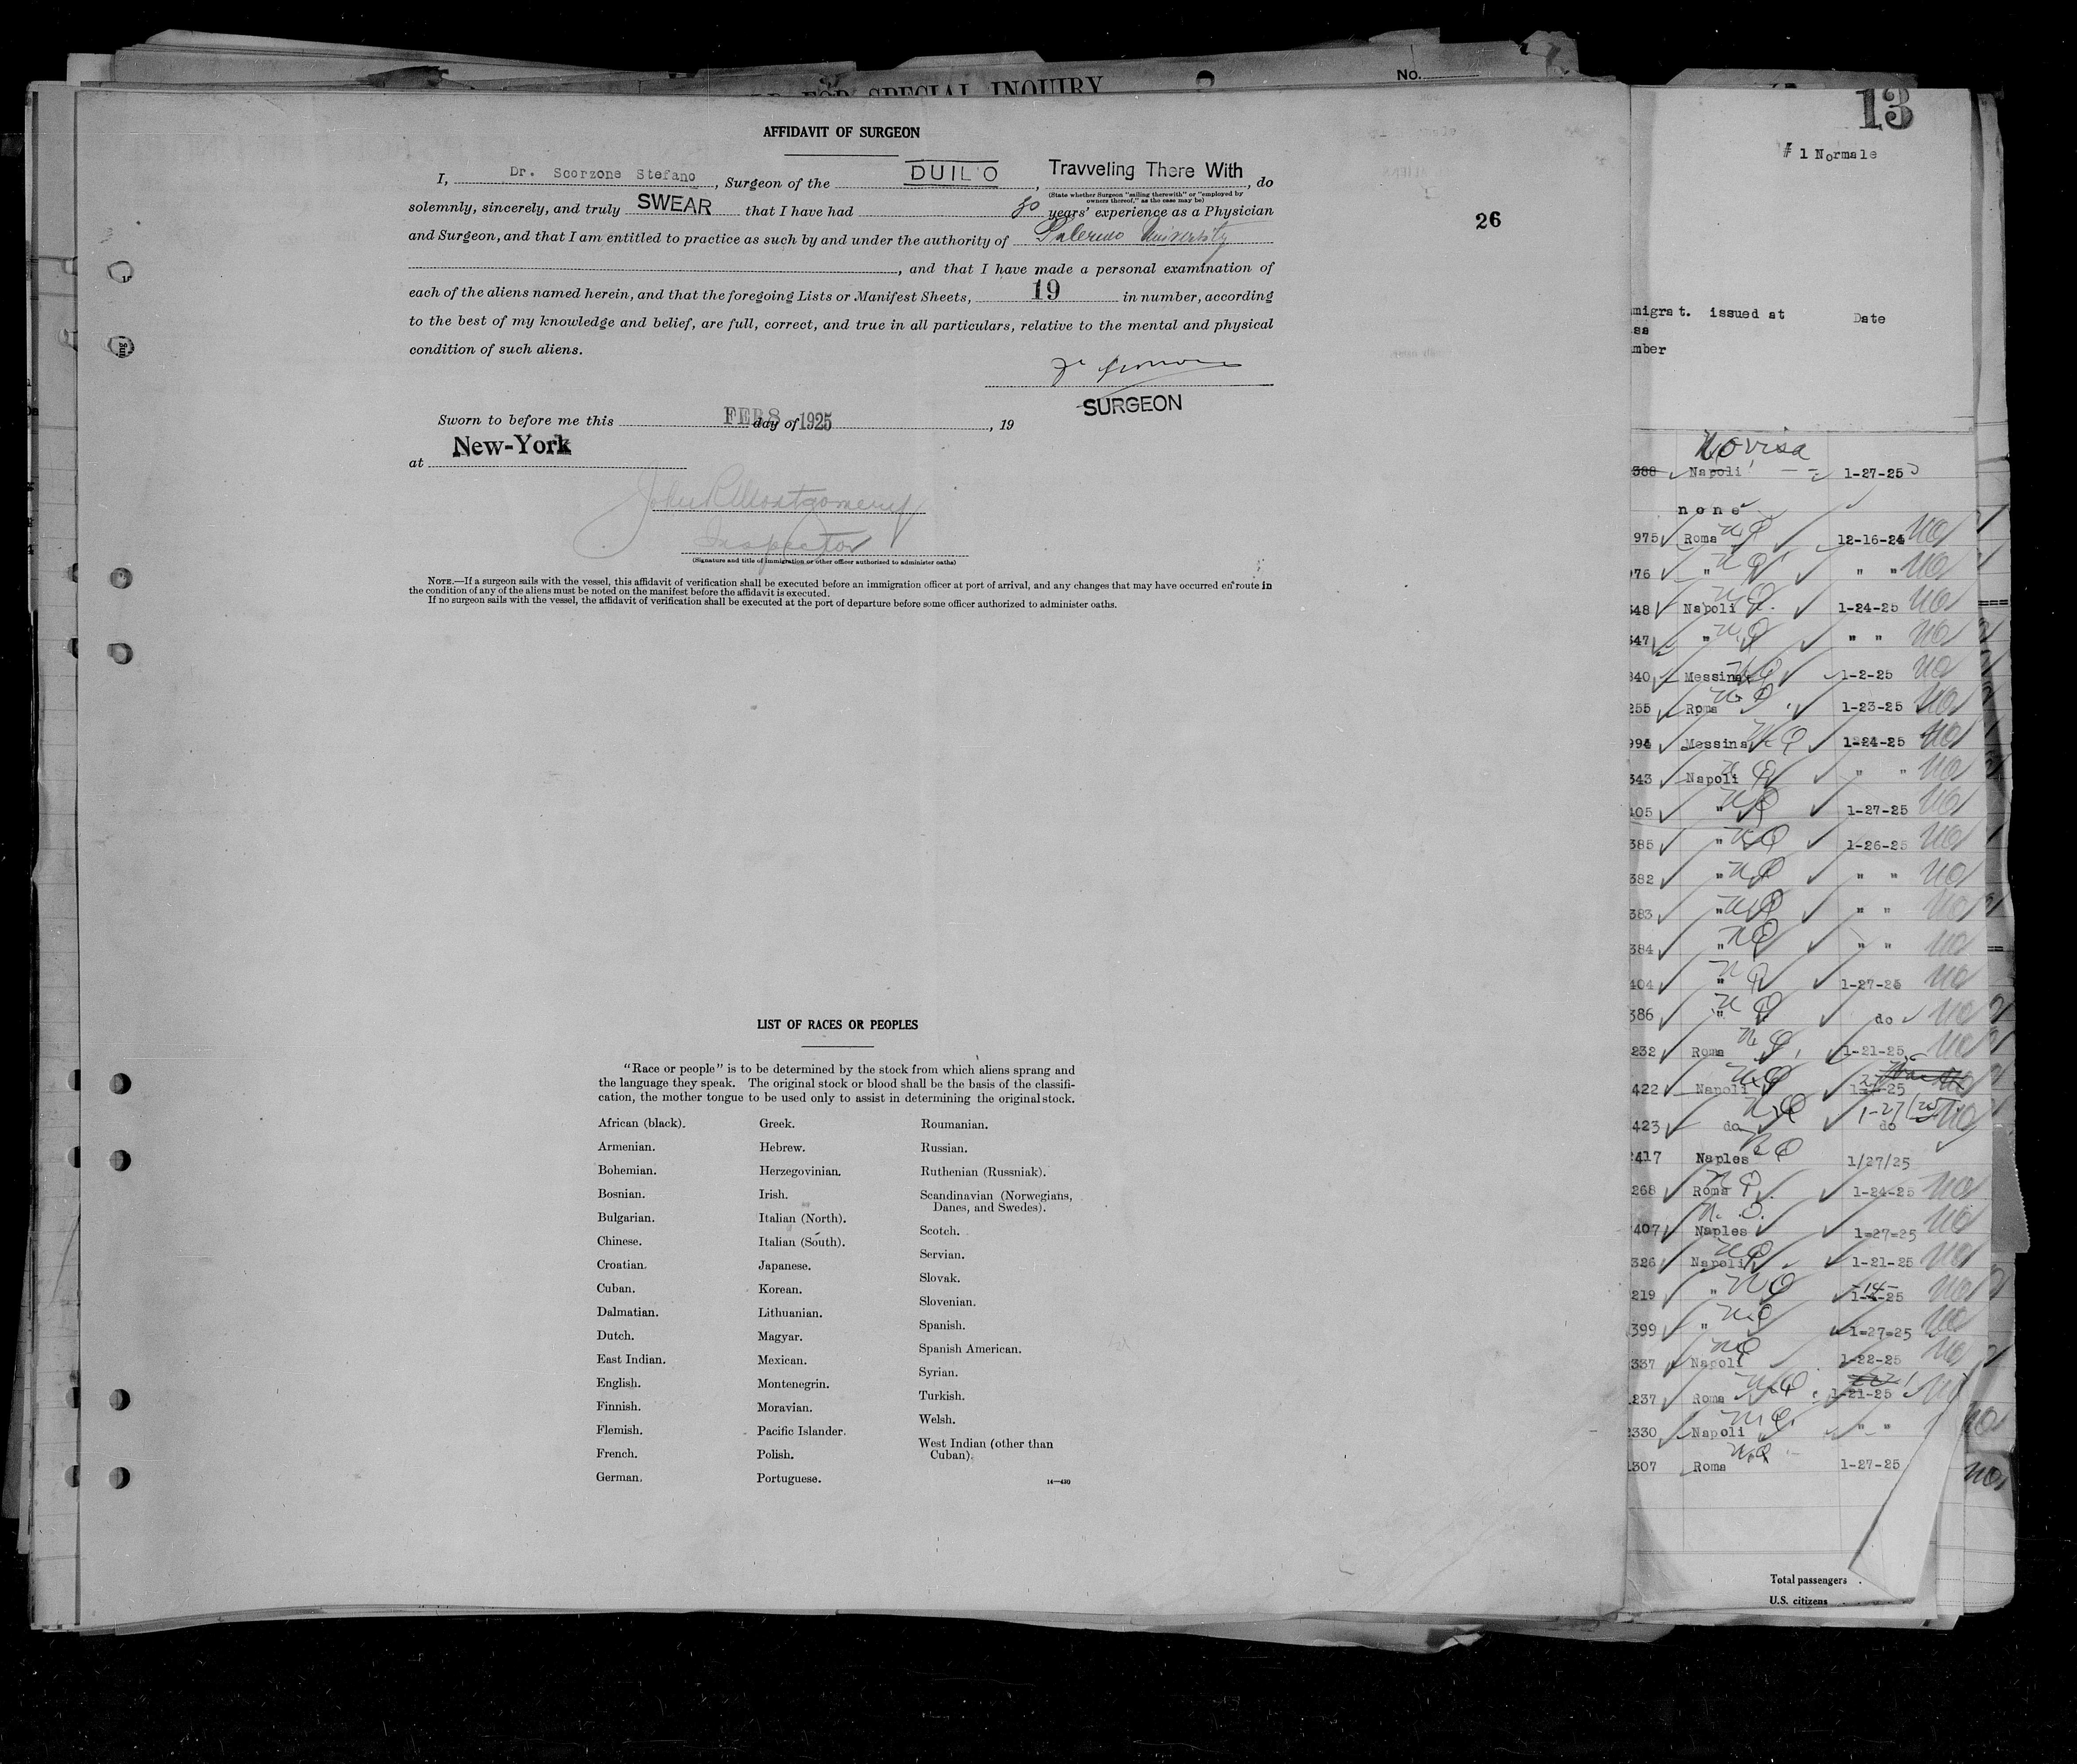 FOR SPECIAL INQUIRY
No.
AFFIDAVIT OF SURGEON
I, Dr. Scorzone Stefano, Surgeon of the DUIL'O, Travveling There With, do
(State whether Surgeon "sailing therewith" or "employed by
owners thereof," as the case may be)
solemnly, sincerely, and truly SWEAR that I have had 30 years' experience as a Physician
and Surgeon, and that I am entitled to practice as such by and under the authority of Palermo University
, and that I have made a personal examination of
each of the aliens named herein, and that the foregoing Lists or Manifest Sheets, 19 in number, according
to the best of my knowledge and belief, are full, correct, and true in all particulars, relative to the mental and physical
condition of such aliens.
SURGEON
Sworn to before me this FEB 8 day of 1925, 19
at New-York
John R Montgomery
Inspector
(Signature and title of immigration or other officer authorized to administer oaths)
NOTE.—If a surgeon sails with the vessel, this affidavit of verification shall be executed before an immigration officer at port of arrival, and any changes that may have occurred en route in
the condition of any of the aliens must be noted on the manifest before the affidavit is executed.
If no surgeon sails with the vessel, the affidavit of verification shall be executed at the port of departure before some officer authorized to administer oaths.
26
LIST OF RACES OR PEOPLES
"Race or people" is to be determined by the stock from which aliens sprang and
the language they speak. The original stock or blood shall be the basis of the classifi-
cation, the mother tongue to be used only to assist in determining the original stock.
African (black).
Armenian.
Bohemian.
Bosnian.
Bulgarian.
Chinese.
Croatian.
Cuban.
Dalmatian.
Dutch.
East Indian.
English.
Finnish.
Flemish.
French.
German.
Greek.
Hebrew.
Herzegovinian.
Irish.
Italian (North).
Italian (South).
Japanese.
Korean.
Lithuanian.
Magyar.
Mexican.
Montenegrin.
Moravian.
Pacific Islander.
Polish.
Portuguese.
Roumanian.
Russian.
Ruthenian (Russniak).
Scandinavian (Norwegians,
Danes, and Swedes).
Scotch.
Servian.
Slovak.
Slovenian.
Spanish.
Spanish American.
Syrian.
Turkish.
Welsh.
West Indian (other than
Cuban).
14—430
13
# 1 Normale
migrat. issued at Date
sa
mber
No visa
388 Napoli 1-27-25
none
975 Roma NQ 12-16-24 no
976 " NQ " " no
348 Napoli 1-24-25 no
347 " NQ " " no
340 Messina NQ 1-2-25 no
255 Roma NQ 1-23-25 no
994 Messina NQ 1-24-25 no
343 Napoli NQ " " no
405 " NQ 1-27-25 no
385 " NQ 1-26-25 no
382 " NQ " " no
383 " NQ " " no
384 " NQ " " no
404 " NQ 1-27-25 no
386 " NQ do no
232 Roma NQ 1-21-25 no
422 Napoli NQ no
423 do NQ 1-27/25 do no
417 Naples NQ 1/27/25
268 Roma NQ 1-24-25 no
407 Naples N.Q. 1=27=25 no
326 Napoli NQ 1-21-25 no
219 " NQ 1-14-25 no
399 " NQ 1=27=25 no
337 Napoli NQ 1-22-25 no
237 Roma NQ 1-21-25 no
330 Napoli NQ " " no
307 Roma NQ 1-27-25 no
Total passengers
U.S. citizens